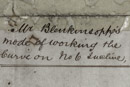 Mr Blenkinsopp's
mode of working the
Curve on No 6 Incline,